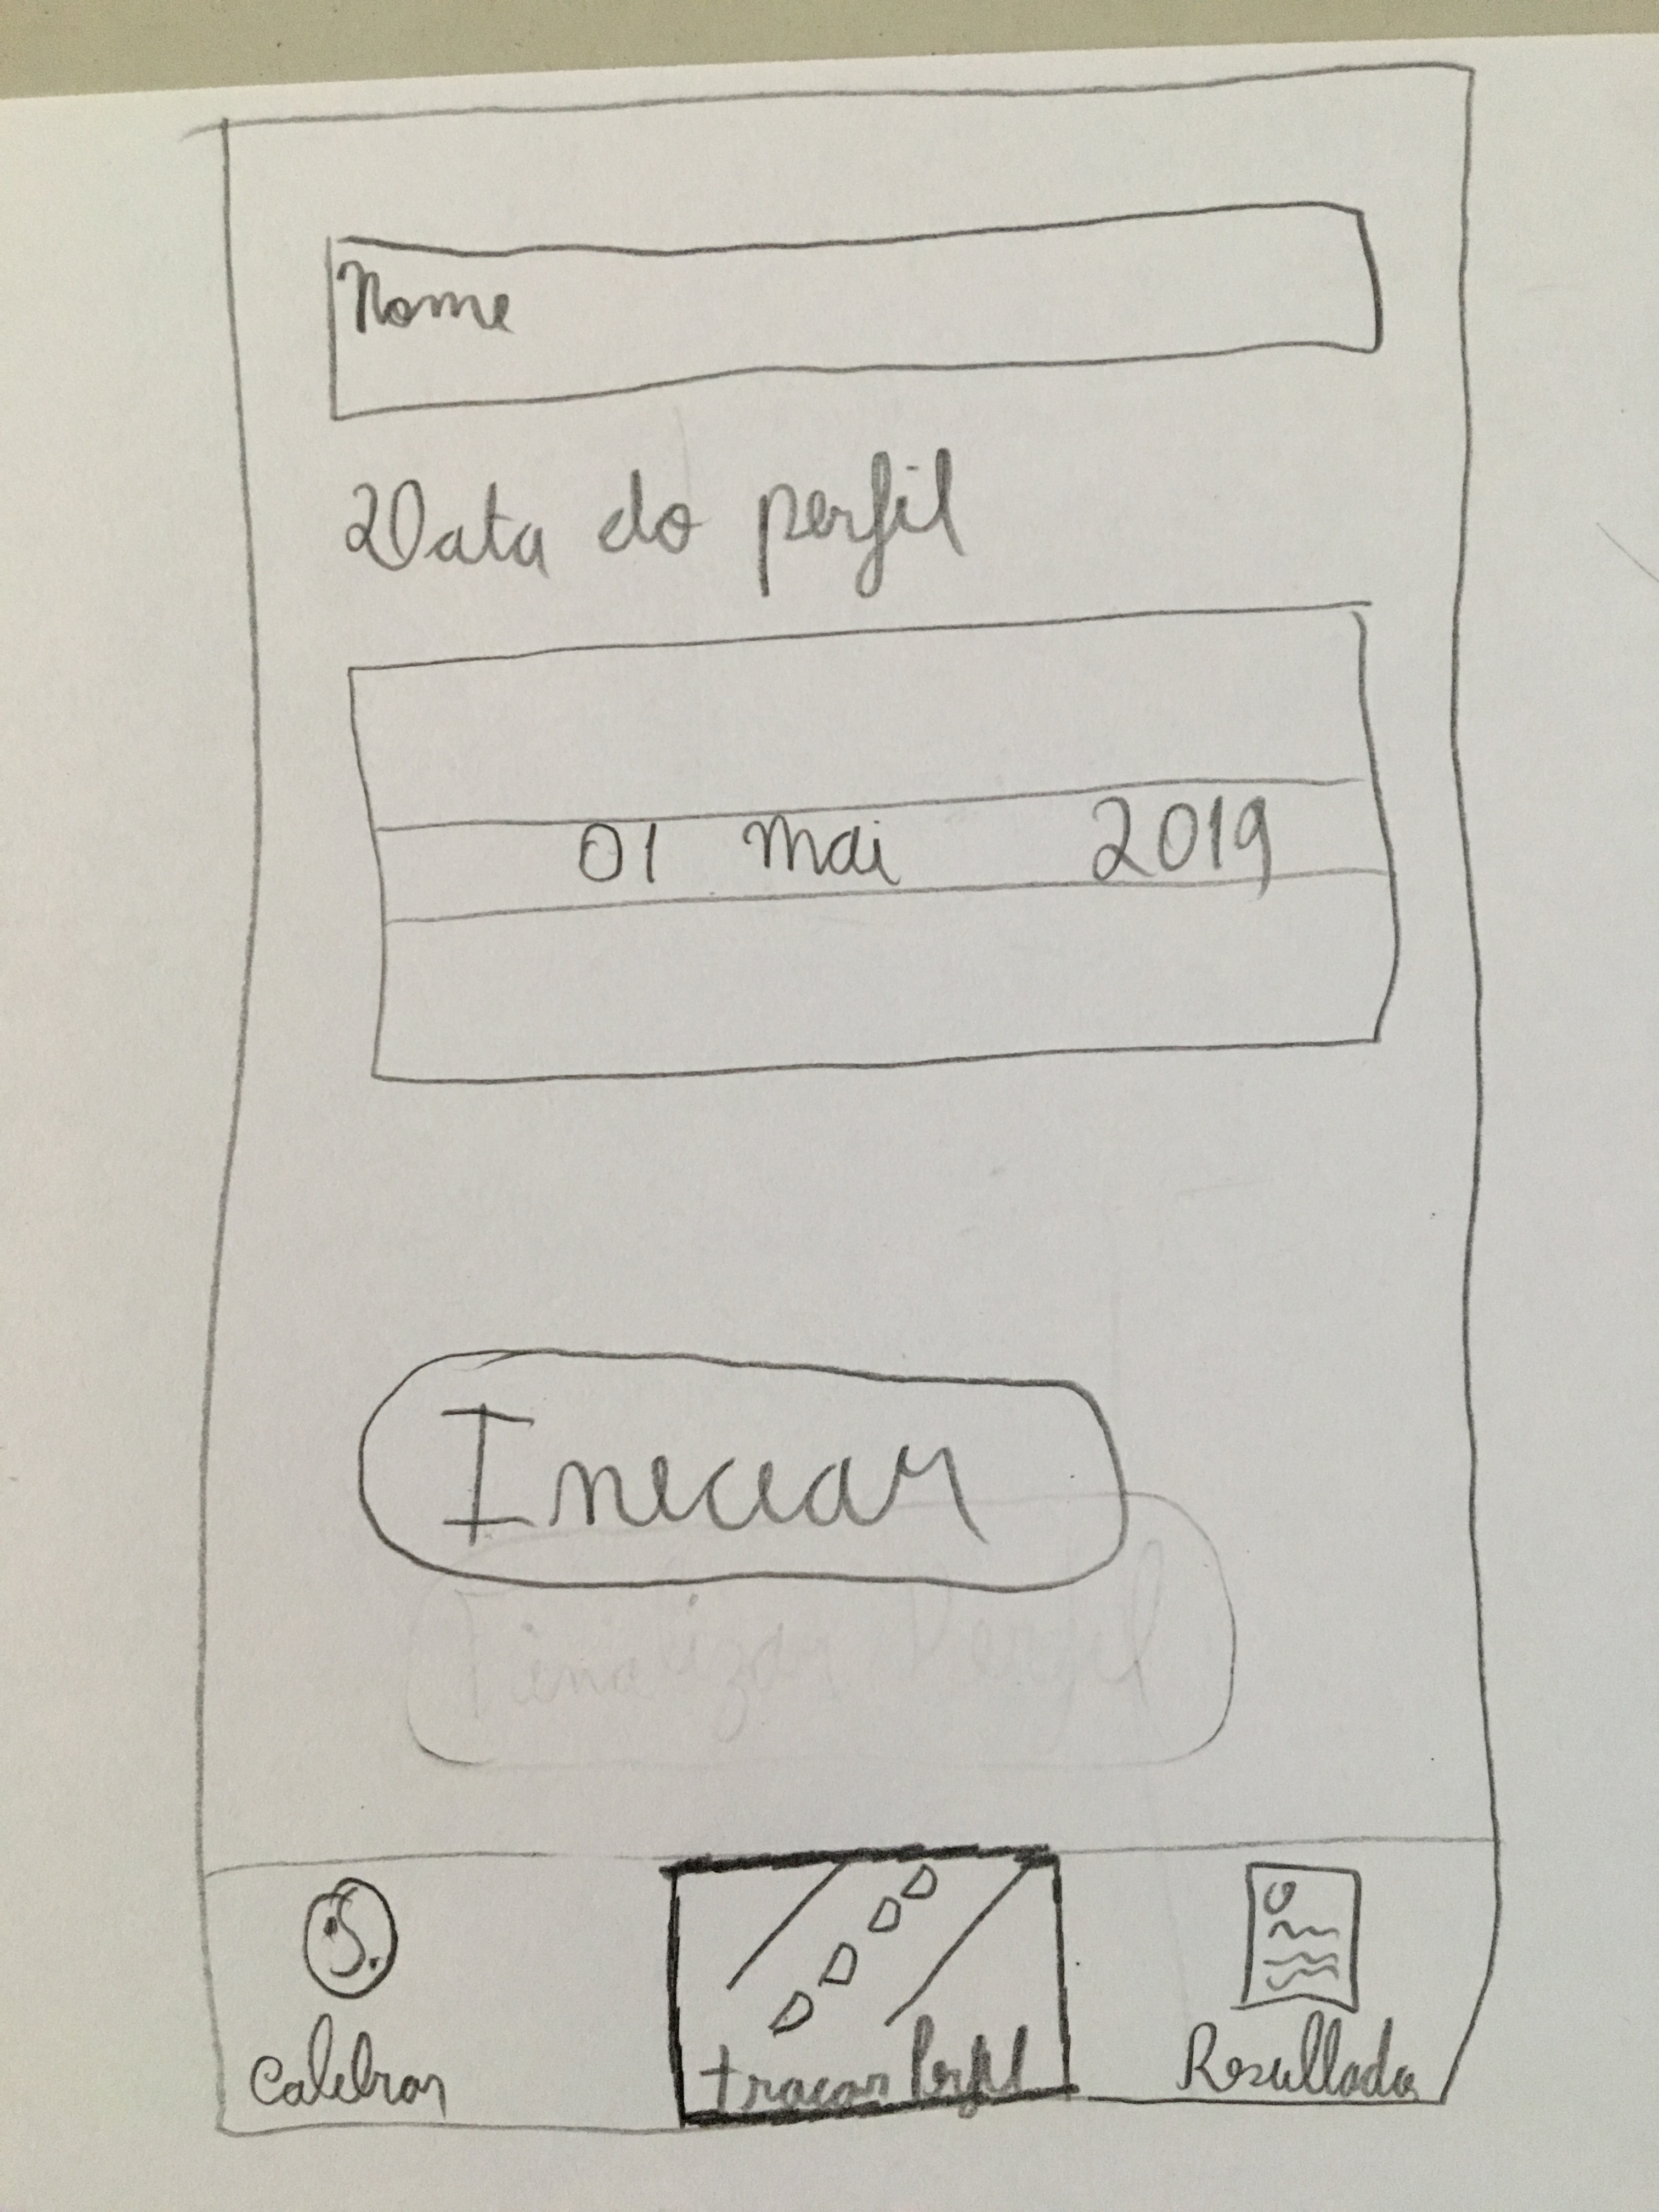 Nome
Data do perfil
01 Mai 2019
Iniciar
Finalizar Perfil
Calibrar
traçar Perfil
Resultado